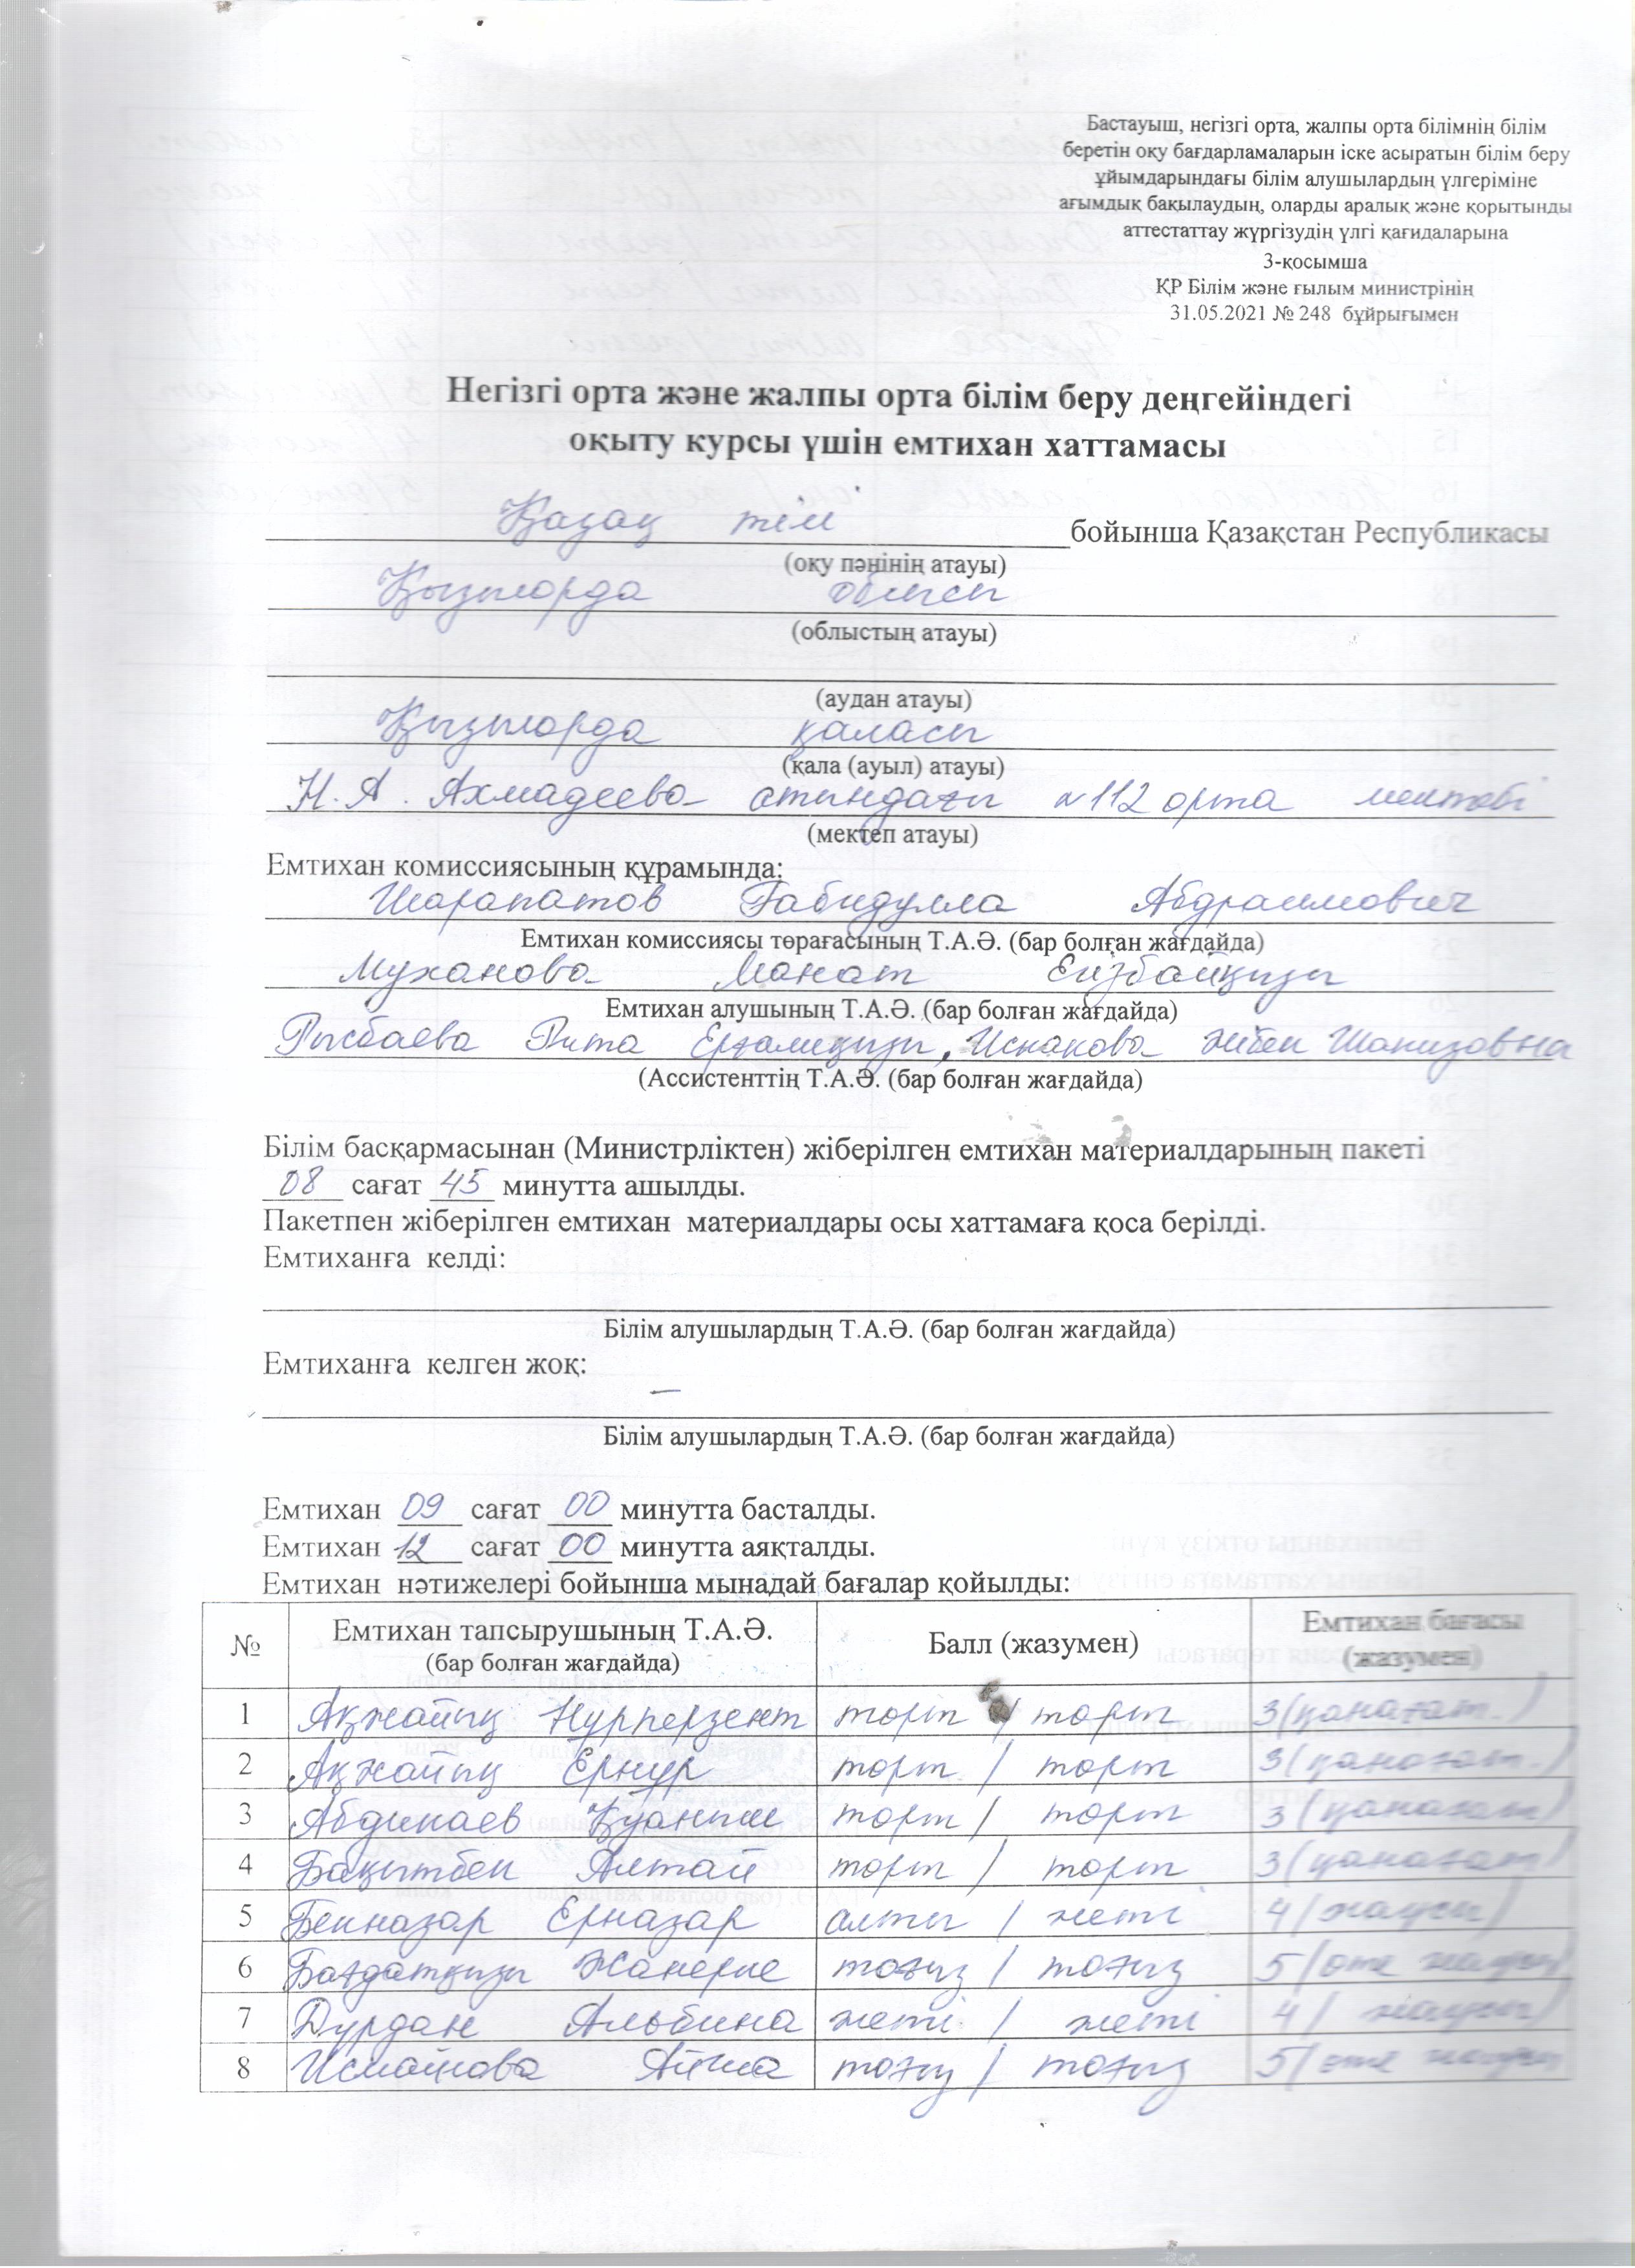 Бастауыш, негізгі орта, жалпы орта білімнің білім
беретін оқу бағдарламаларын іске асыратын білім беру
ұйымдарындағы білім алушылардың үлгеріміне
ағымдық бақылаудың, оларды аралық және қорытынды
аттестаттау жүргізудің үлгі қағидаларына
3-қосымша
ҚР Білім және ғылым министрінің
31.05.2021 № 248 бұйрығымен
Негізгі орта және жалпы орта білім беру деңгейіндегі
оқыту курсы үшін емтихан хаттамасы
Қазақ тілі бойынша Қазақстан Республикасы
(оқу пәнінің атауы)
Қызылорда облысы
(облыстың атауы)
(аудан атауы)
Қызылорда қаласы
(қала (ауыл) атауы)
Н.А. Ахмадеева атындағы №112 орта мектебі
(мектеп атауы)
Емтихан комиссиясының құрамында:
Шарапатов Габидулла Абдраимович
Емтихан комиссиясы төрағасының Т.А.Ә. (бар болған жағдайда)
Муханова Манат
Емтихан алушының Т.А.Ә. (бар болған жағдайда)
Рысбаева Рита Ерғалиқызы, Искакова Жібек
(Ассистенттің Т.А.Ә. (бар болған жағдайда)
Білім басқармасынан (Министрліктен) жіберілген емтихан материалдарының пакеті
08 сағат 45 минутта ашылды.
Пакетпен жіберілген емтихан материалдары осы хаттамаға қоса берілді.
Емтиханға келді:
Білім алушылардың Т.А.Ә. (бар болған жағдайда)
Емтиханға келген жоқ:
–
Білім алушылардың Т.А.Ә. (бар болған жағдайда)
Емтихан 09 сағат 00 минутта басталды.
Емтихан 12 сағат 00 минутта аяқталды.
Емтихан нәтижелері бойынша мынадай бағалар қойылды:
№ Емтихан тапсырушының Т.А.Ә. (бар болған жағдайда) Балл (жазумен) Емтихан бағасы (жазумен)
1 Ақжайық Нурперзент төрт / төрт 3 (қанағат.)
2 Ақжайық Ернұр төрт / төрт 3 (қанағат.)
3 Абдикаев Қуаныш төрт / төрт 3 (қанағат)
4 Бақытбек Алтай төрт / төрт 3 (қанағат)
5 Бекназар Ерназар алты / жеті 4 (жақсы)
6 Бағдатқызы Жанерке тоғыз / тоғыз 5 (өте жақсы)
7 Дурдан Альбина жеті / жеті 4 (жақсы)
8 Исмайлова Айша тоғыз / тоғыз 5 (өте жақсы)